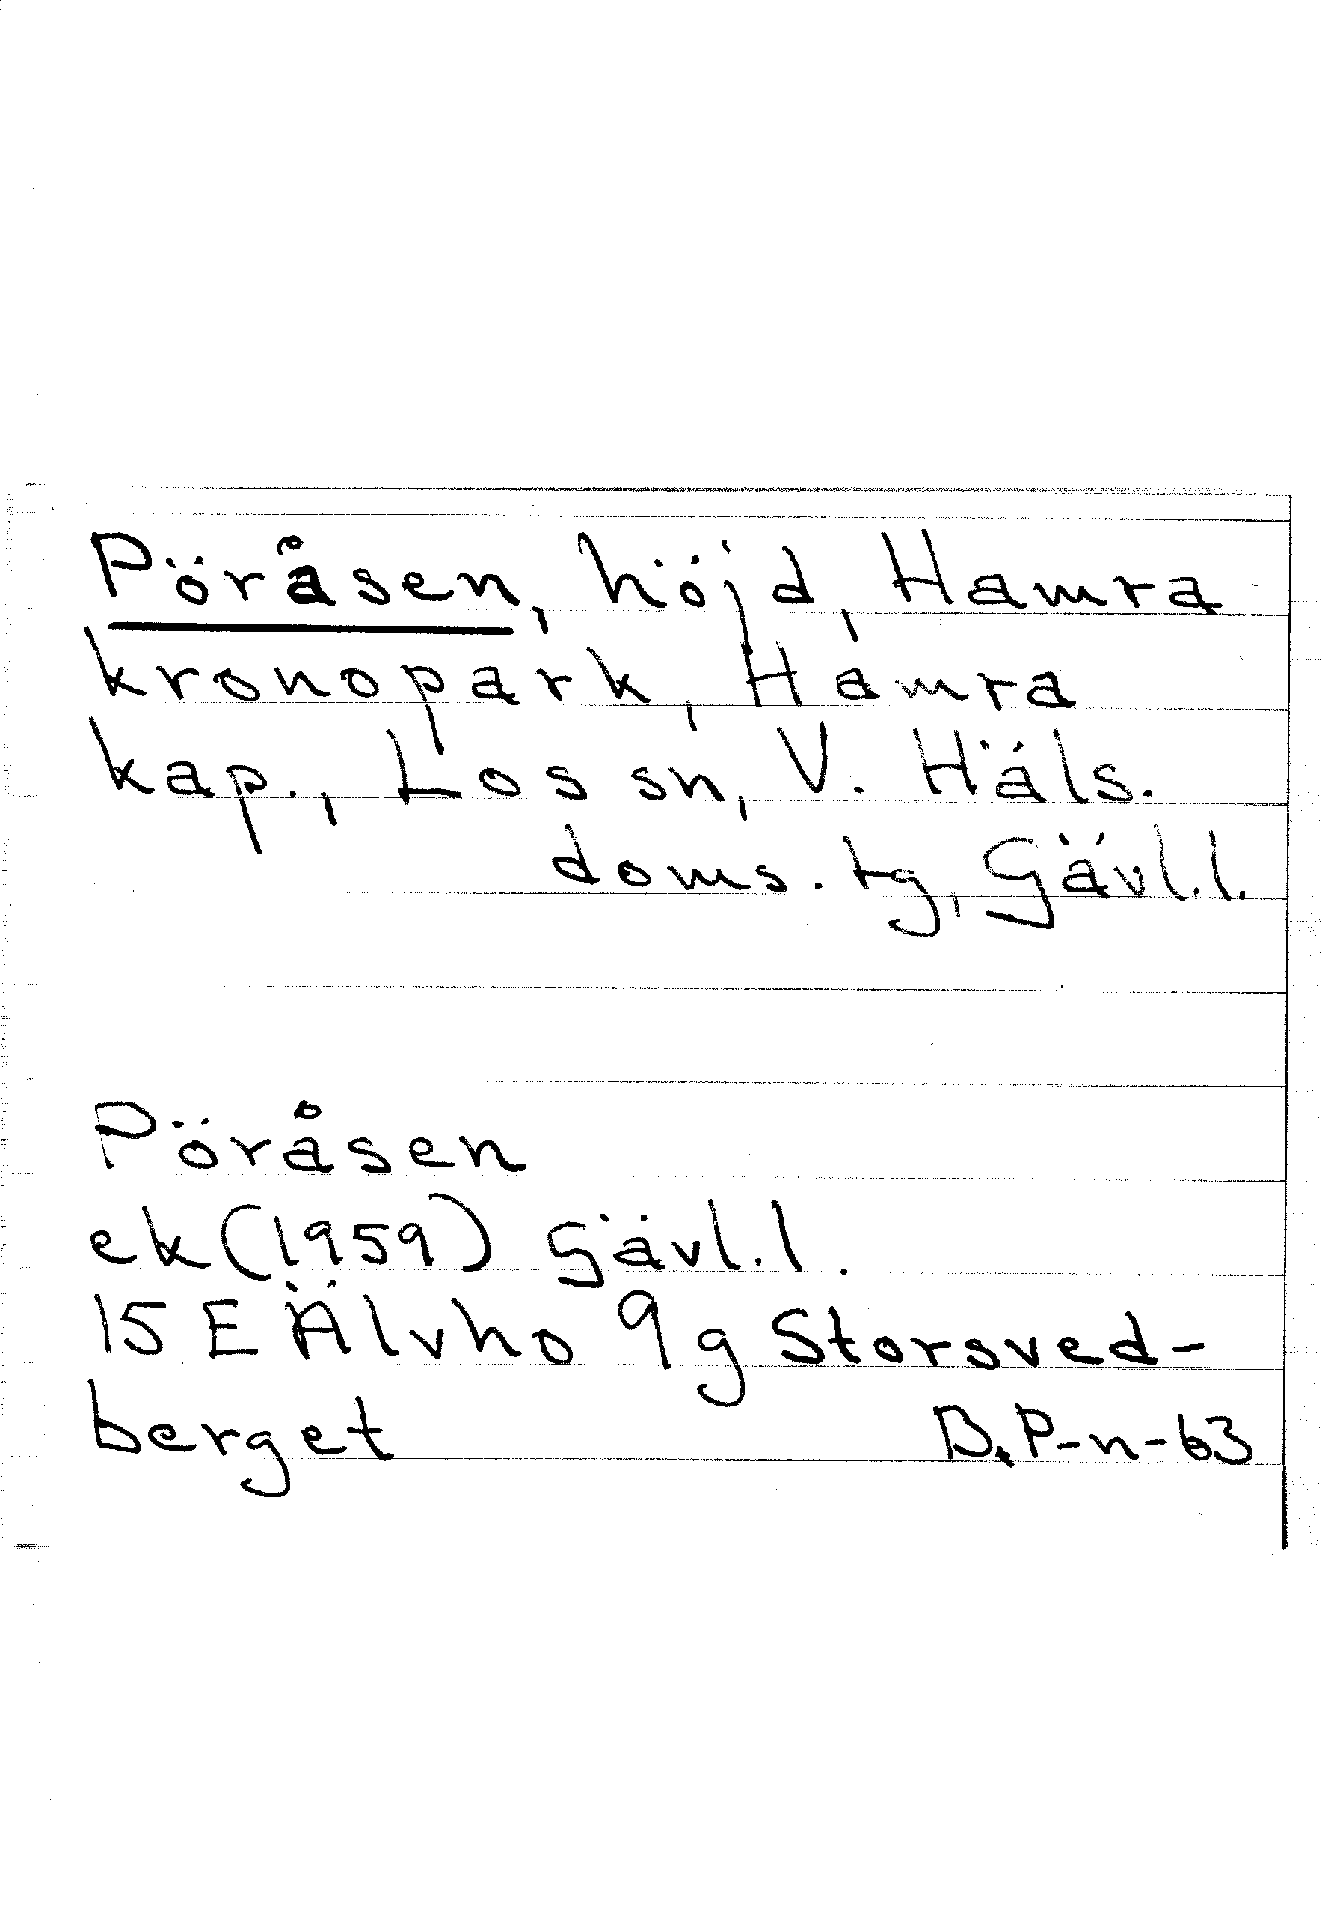 Pöråsen, höjd, Hamra
kronopark, Hamra
kap., Los sn, V. Häls.
doms. tg, Gävl.l.
Pöråsen
ek (1959) Gävl.l.
15 E Älvho 9g Storsved-
berget B.P-n-63